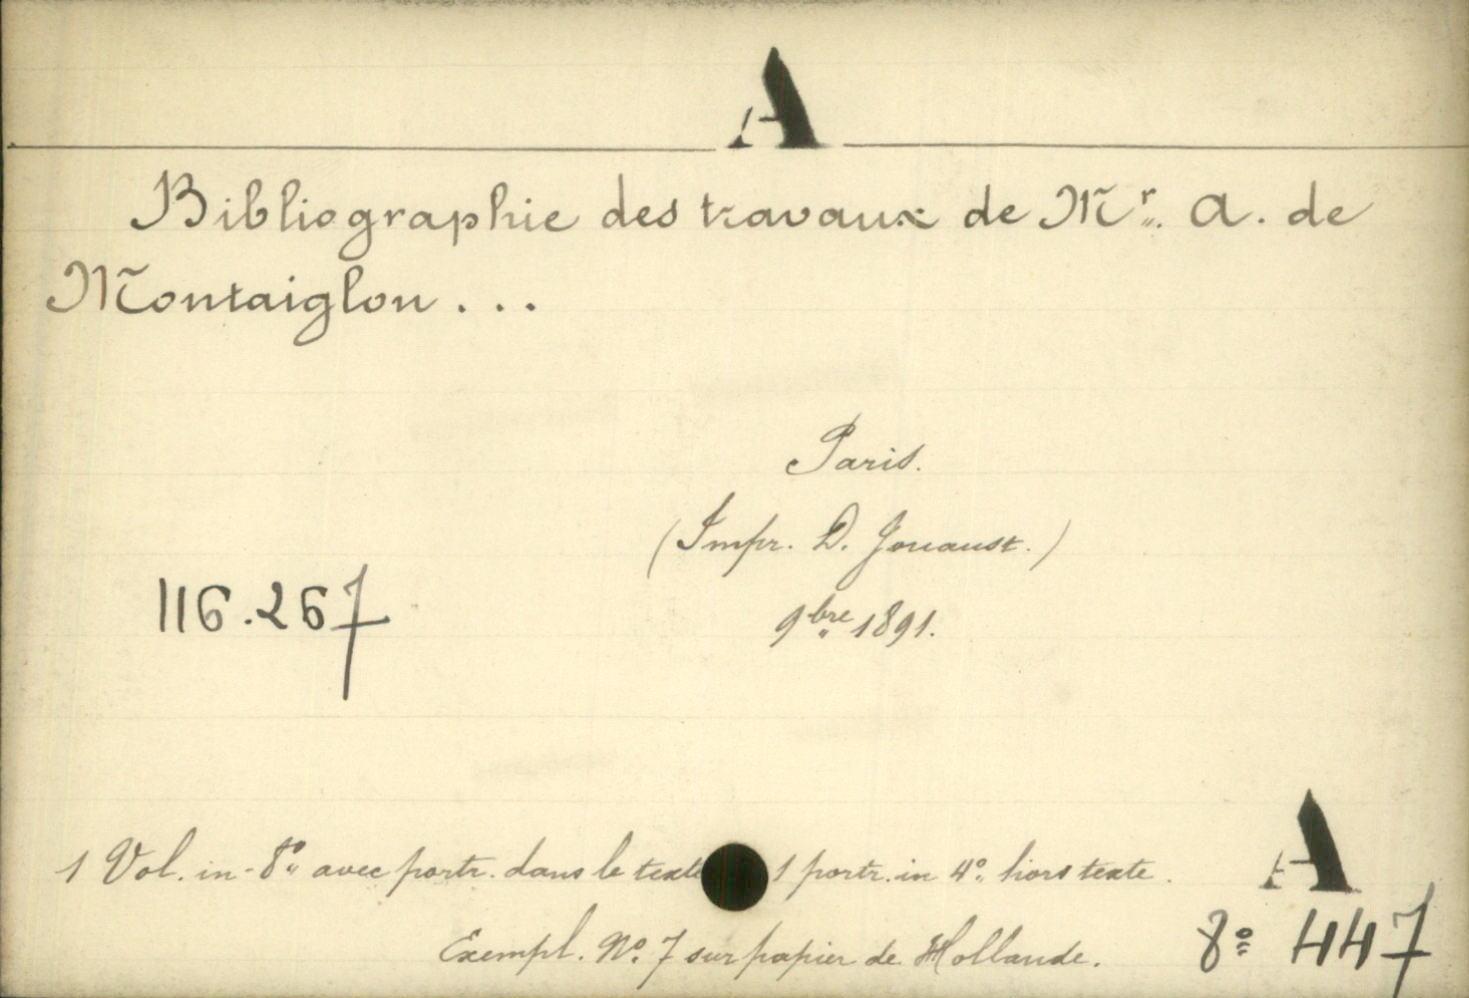 A
Bibliographie des travaux de Mr. A. de
Montaiglon . . .
Paris.
(Impr. D. Jouaust.)
116.267
9bre 1891.
1 Vol. in-8° avec portr. dans le texte 1 portr. in 4° hors texte.
A
Exempl. N° 7 sur papier de Hollande.
8° 447